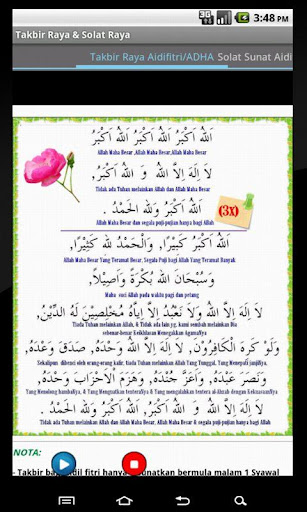 3G 3:48 PM
Takbir Raya & Solat Raya
Takbir Raya Aidifitri/ADHA Solat Sunat Aidi
اَللهُ اَكْبَرُ اَللهُ اَكْبَرُ اَللهُ اَكْبَرُ
Allah Maha Besar ,Allah Maha Besar,Allah Maha Besar
لَا إِلَهَ إِلَّا اللهُ وَ اللهُ اَكْبَرُ
Tidak ada Tuhan melainkan Allah dan Allah Maha Besar
اَللهُ اَكْبَرُ وَللهِ الْحَمْدُ.
(3x)
Allah Maha Besar dan segala puji-pujian hanya bagi Allah
اَللهُ اَكْبَرُ كَبِيْرًا، وَالْحَمْدُ للهِ كَثِيْرًا،
Allah Maha Besar Yang Teramat Besar, Segala Puji bagi Allah Yang Teramat Banyak
وَسُبْحَانَ اللهِ بُكْرَةً وَأَصِيْلاً،
Maha suci Allah pada waktu pagi dan petang
لَا إِلَهَ إِلَّا اللهُ وَلَا نَعْبُدُ إِلَّا إِيَّاهُ مُخْلِصِيْنَ لَهُ الدِّيْنَ،
Tiada Tuhan melainkan Allah, & Tidak ada lain yg. kami sembah melainkan Dia
sebenar-benar Keikhlasan Menegakkan AgamaNya
وَلَوْ كَرِهَ الْكَافِرُوْنَ، لَا إِلَهَ إِلَّا اللهُ وَحْدَهُ، صَدَقَ وَعْدَهُ،
Sekalipun dibenci oleh orang-orang kafir, tiada Tuhan melainkan Allah Yang Tunggal, Yang Menepati janjiNya,
وَنَصَرَ عَبْدَهُ، وَأَعَزَّ جُنْدَهُ، وَهَزَمَ الْأَحْزَابَ وَحْدَهُ،
Yang Menolong hambaNya, & Yang Menguatkan tenteraNya & Yang mengalahkan tentera al-Ahzab dengan KekuasaanNya.
لَا إِلَهَ إِلَّا اللهُ وَاللهُ اَكْبَرُ، اَللهُ اَكْبَرُ وَللهِ الْحَمْدُ.
Tidak ada Tuhan melainkan Allah dan Allah Maha Besar, Allah Maha Besar & segala puji-pujian hanya bagi Allah
NOTA:
- Takbir ba dil fitri hany unatkan bermula malam 1 Syawal